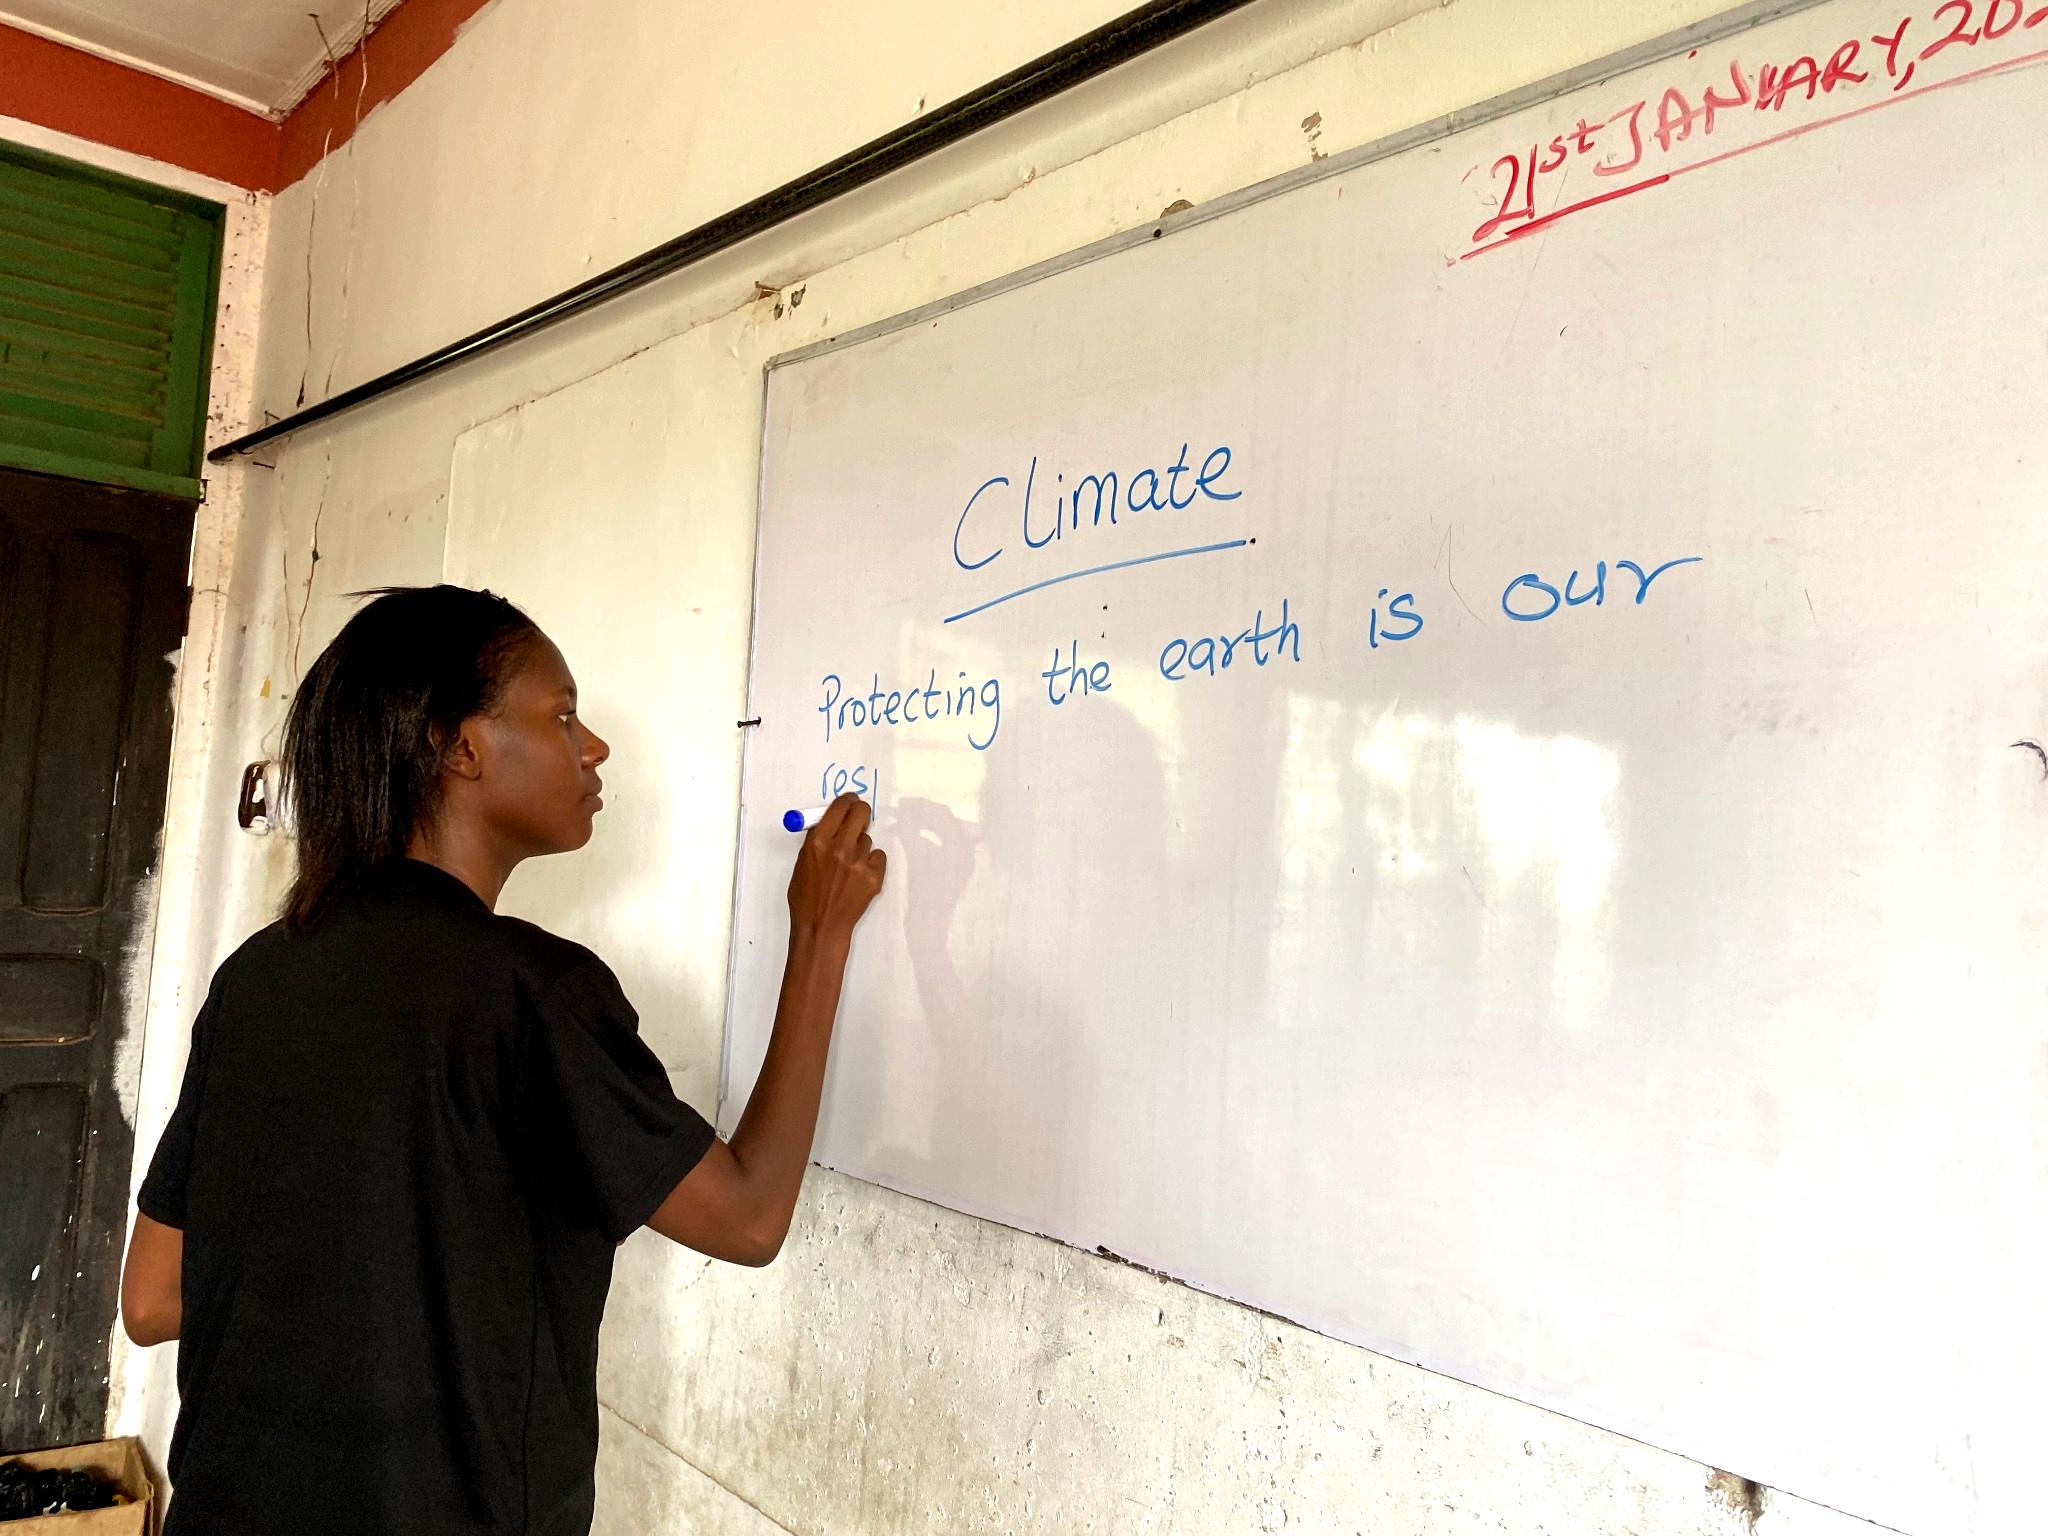 21st JANUARY, 202
Climate
Protecting the earth is our
resp